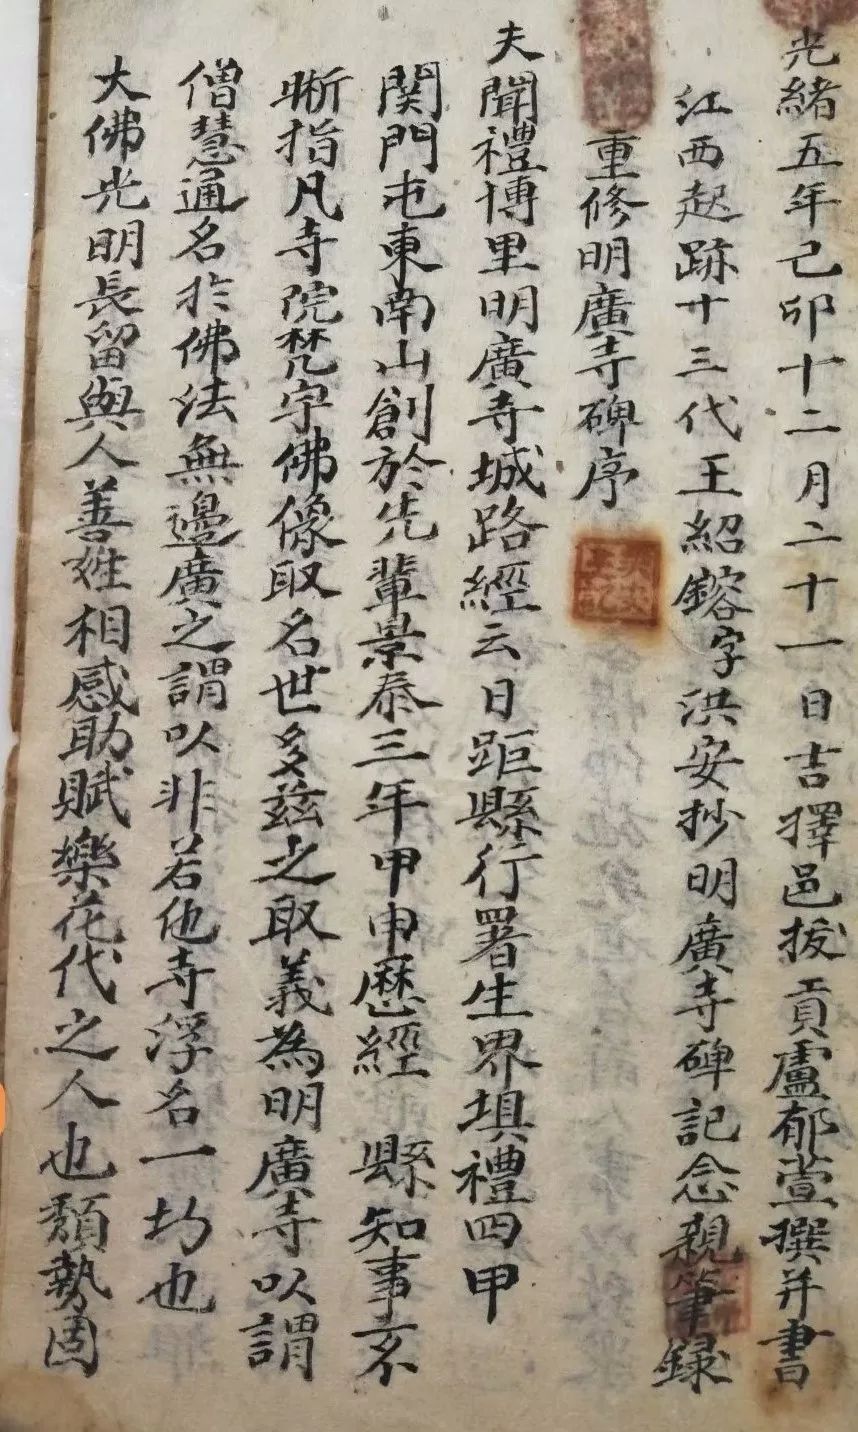 光緒五年己卯十二月二十一日吉擇邑拔貢盧郁萱撰并書
江西起跡十三代王紹鎔字洪安抄明廣寺碑記念親筆錄
重修明廣寺碑序
夫聞禮博里明廣寺城路經云日距縣行署生界填禮四甲
関門屯東南山創於先輩景泰三年甲申歷經縣知事亥不
晰指凡寺院梵字佛像取名世多茲之取義為明廣寺以謂
僧慧通名於佛法無邊廣之謂以非若他寺浮名一圬也
大佛光明長留與人善姓相感助賦樂花代之人也頽勢固